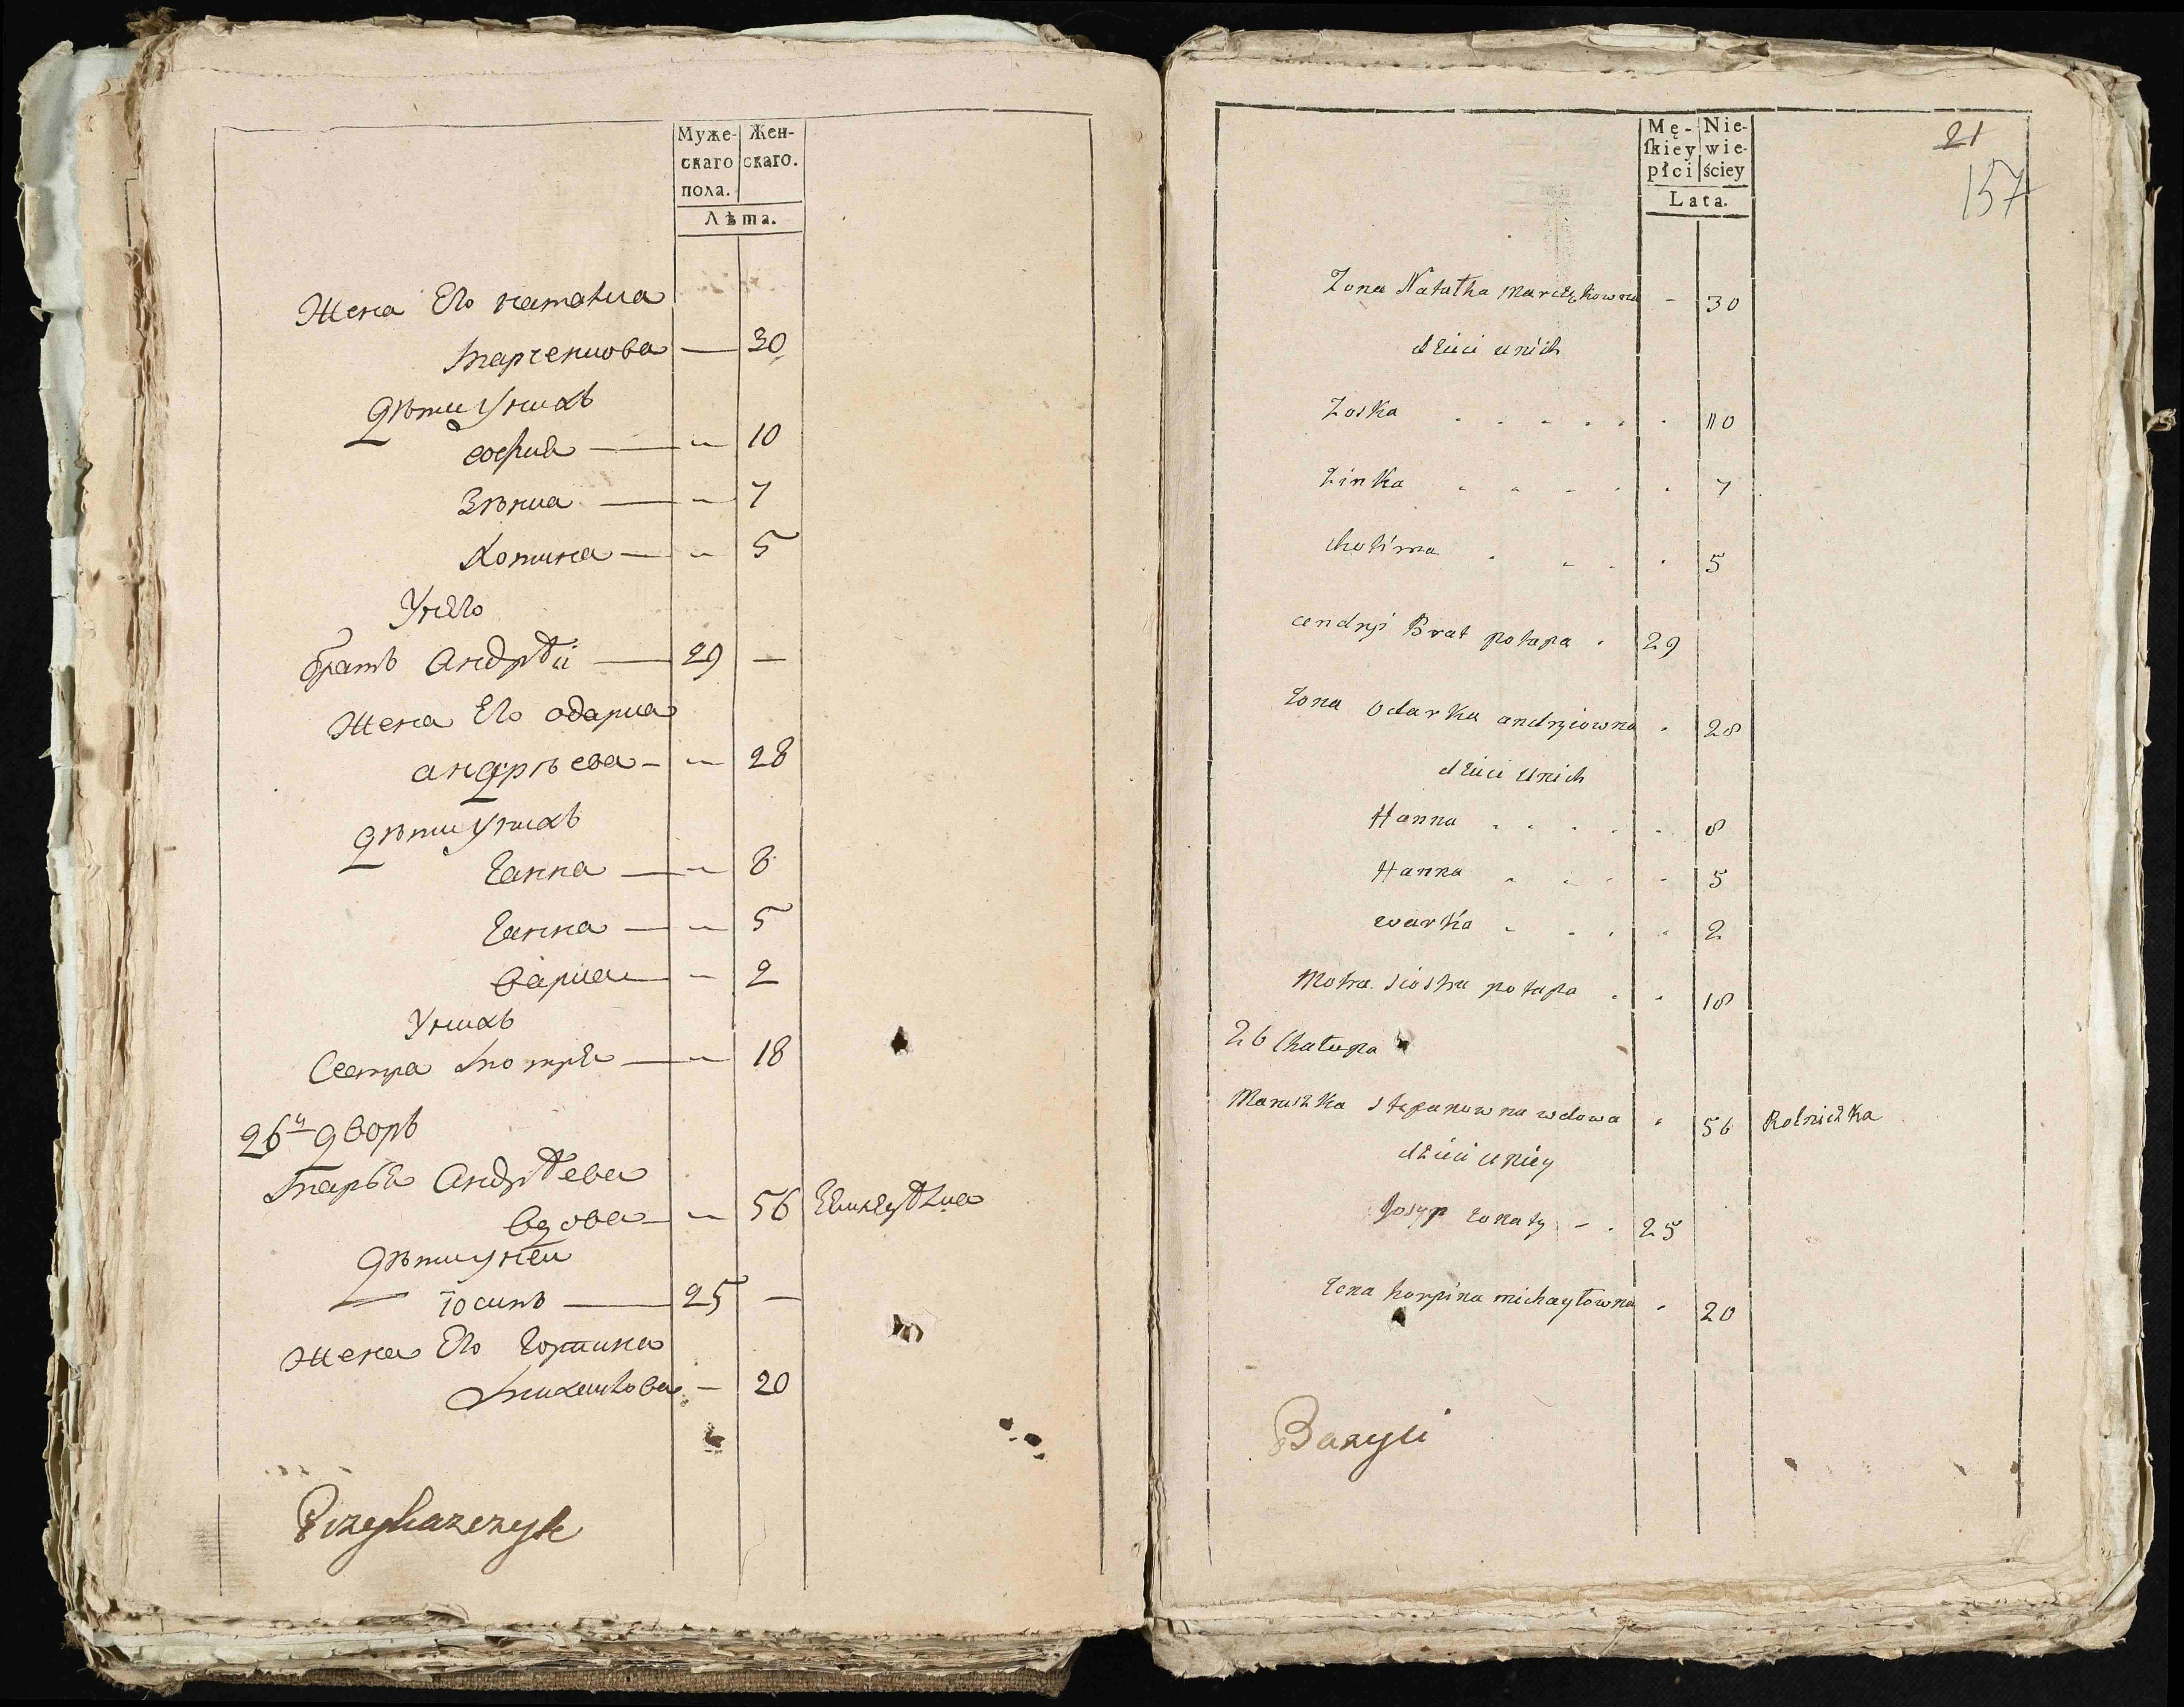 Муже-
скаго
пола.
Жен-
скаго.
Лѣта.
Жена Его наталка
марченкова — 30
Дѣти у нихъ
софия — „ 10
Зѣнка — „ 7
Хотина — „ 5
У него
братъ Андрѣй — 29 —
Жена Его одарка
андрѣева — „ 28
дѣти у нихъ
Ганна — „ 8
Ганна — „ 5
варка — „ 2
У нихъ
Сестра мотря — „ 18
26й дворъ
марья Андрѣева
вдова — „ 56
Дѣти у ней
іосипъ — 25 —
Жена Его горпина
михайлова — 20
Przykazczyk
Mę-
ſkiey
płci
Nie-
wie-
ściey
Lata.
21
157
Zona Natałka Marczękowna - 30
dzieci unich
Zoska . . . . . . 10
Zinka . . . . . 7
Chotima . . . . 5
andryi Brat potapa . 29
zona Odarka andryiowna . 28
dzieci unich
Hanna . . . . . 8
Hanna . . . . 5
warka . . . . 2
Motra siostra potapa . . 18
26 Chałupa
Maruszka stepanowna wdowa . 56 Rolniczka
dzieci uniey
Josyp zonaty - . 25
zona horpina michayłowna . 20
Bazyli